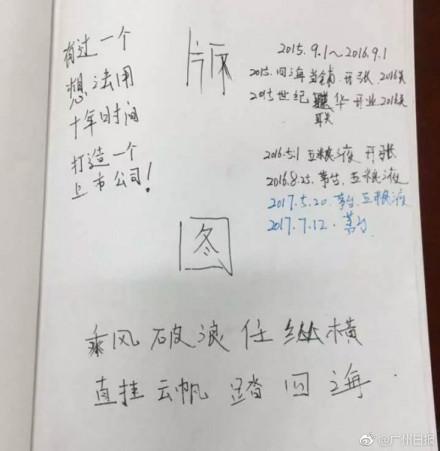 有过一个
想法用
十年时间
打造一个
上市公司!
版
图
2015.9.1～2016.9.1
2015.四海当铺.开张.2016关
2015世纪联华开业.2016关
联
2016.5.1 五粮液 开张
2016.8.25.茅台.五粮液
2017.5.20.茅台.五粮液
2017.7.12.茅台
乘风破浪任纵横
直挂云帆踏四海.
@广州日报